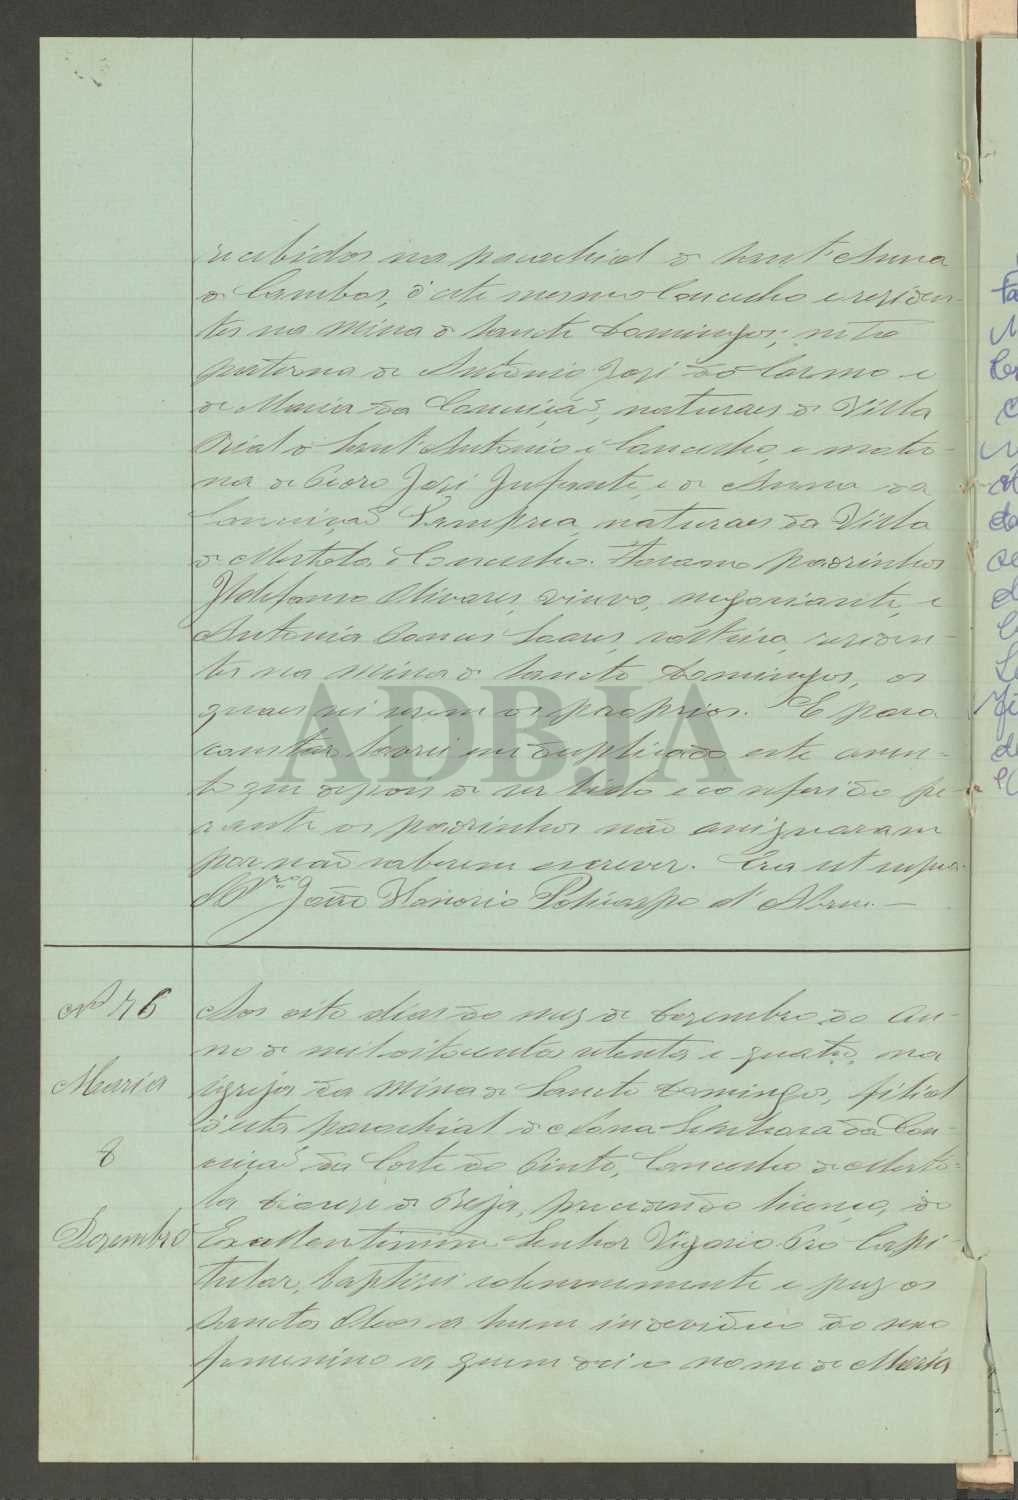 recebidos na parochial de Sant'Anna
de Cambas, d'este mesmo Concelho e residen-
tes na Mina de Sancto Domingos; neta
paterna de Antonio José do Carmo e
de Maria da Conceição, naturaes de Villa
Real de Sant'Antonio e Concelho, e mater-
na de Pedro José Infante, e de Anna da
Conceição naturaes da Villa
de Mertola e Concelho. Foram padrinhos
Ildefonso Olivares, viuvo, negociante, e
Antonia Soares, solteira, residen-
tes na Mina de Sancto Domingos, os
quaes sei serem os proprios. E para
constar lavrei em duplicado este assen-
to que depois de ser lido e conferido pe-
rante os padrinhos não assignaram
por não saberem escrever. Era ut supra.
O João Honorio Policarpo d'Abreu.
Nº 76
Maria
8
Dezembro
Aos oito dias do mez de Dezembro do An-
no de mil oitocentos setenta e quatro, na
igreja da Mina de Sancto Domingos, filial
d'esta parochial de Nossa Senhora da Con-
ceição da Corte do Pinto, Concelho de Merto-
la diocese de Beja, precedendo licença, do
Excellentissimo Senhor Vigario Pro Capi-
tular, baptizei solemnemente e puz os
Sanctos Oleos a hum individuo do sexo
femenino a quem dei o nome de Maria
ADBJA